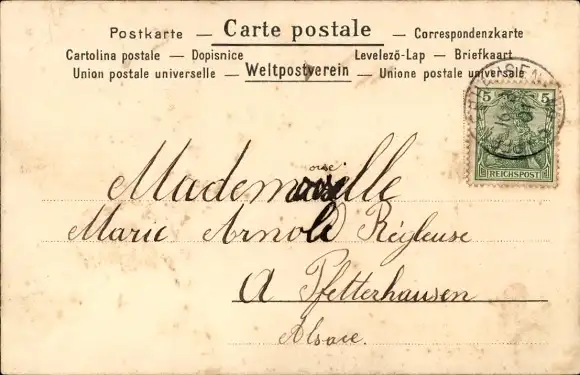 Postkarte — Carte postale — Correspondenzkarte
Cartolina postale — Dopisnice Levelező-Lap — Briefkaart
Union postale universelle — Weltpostverein — Unione postale universale
5 5
REICHSPOST
oise
Mademoiselle
Marie Arnold Régleuse
A Pfetterhausen
Alsace.